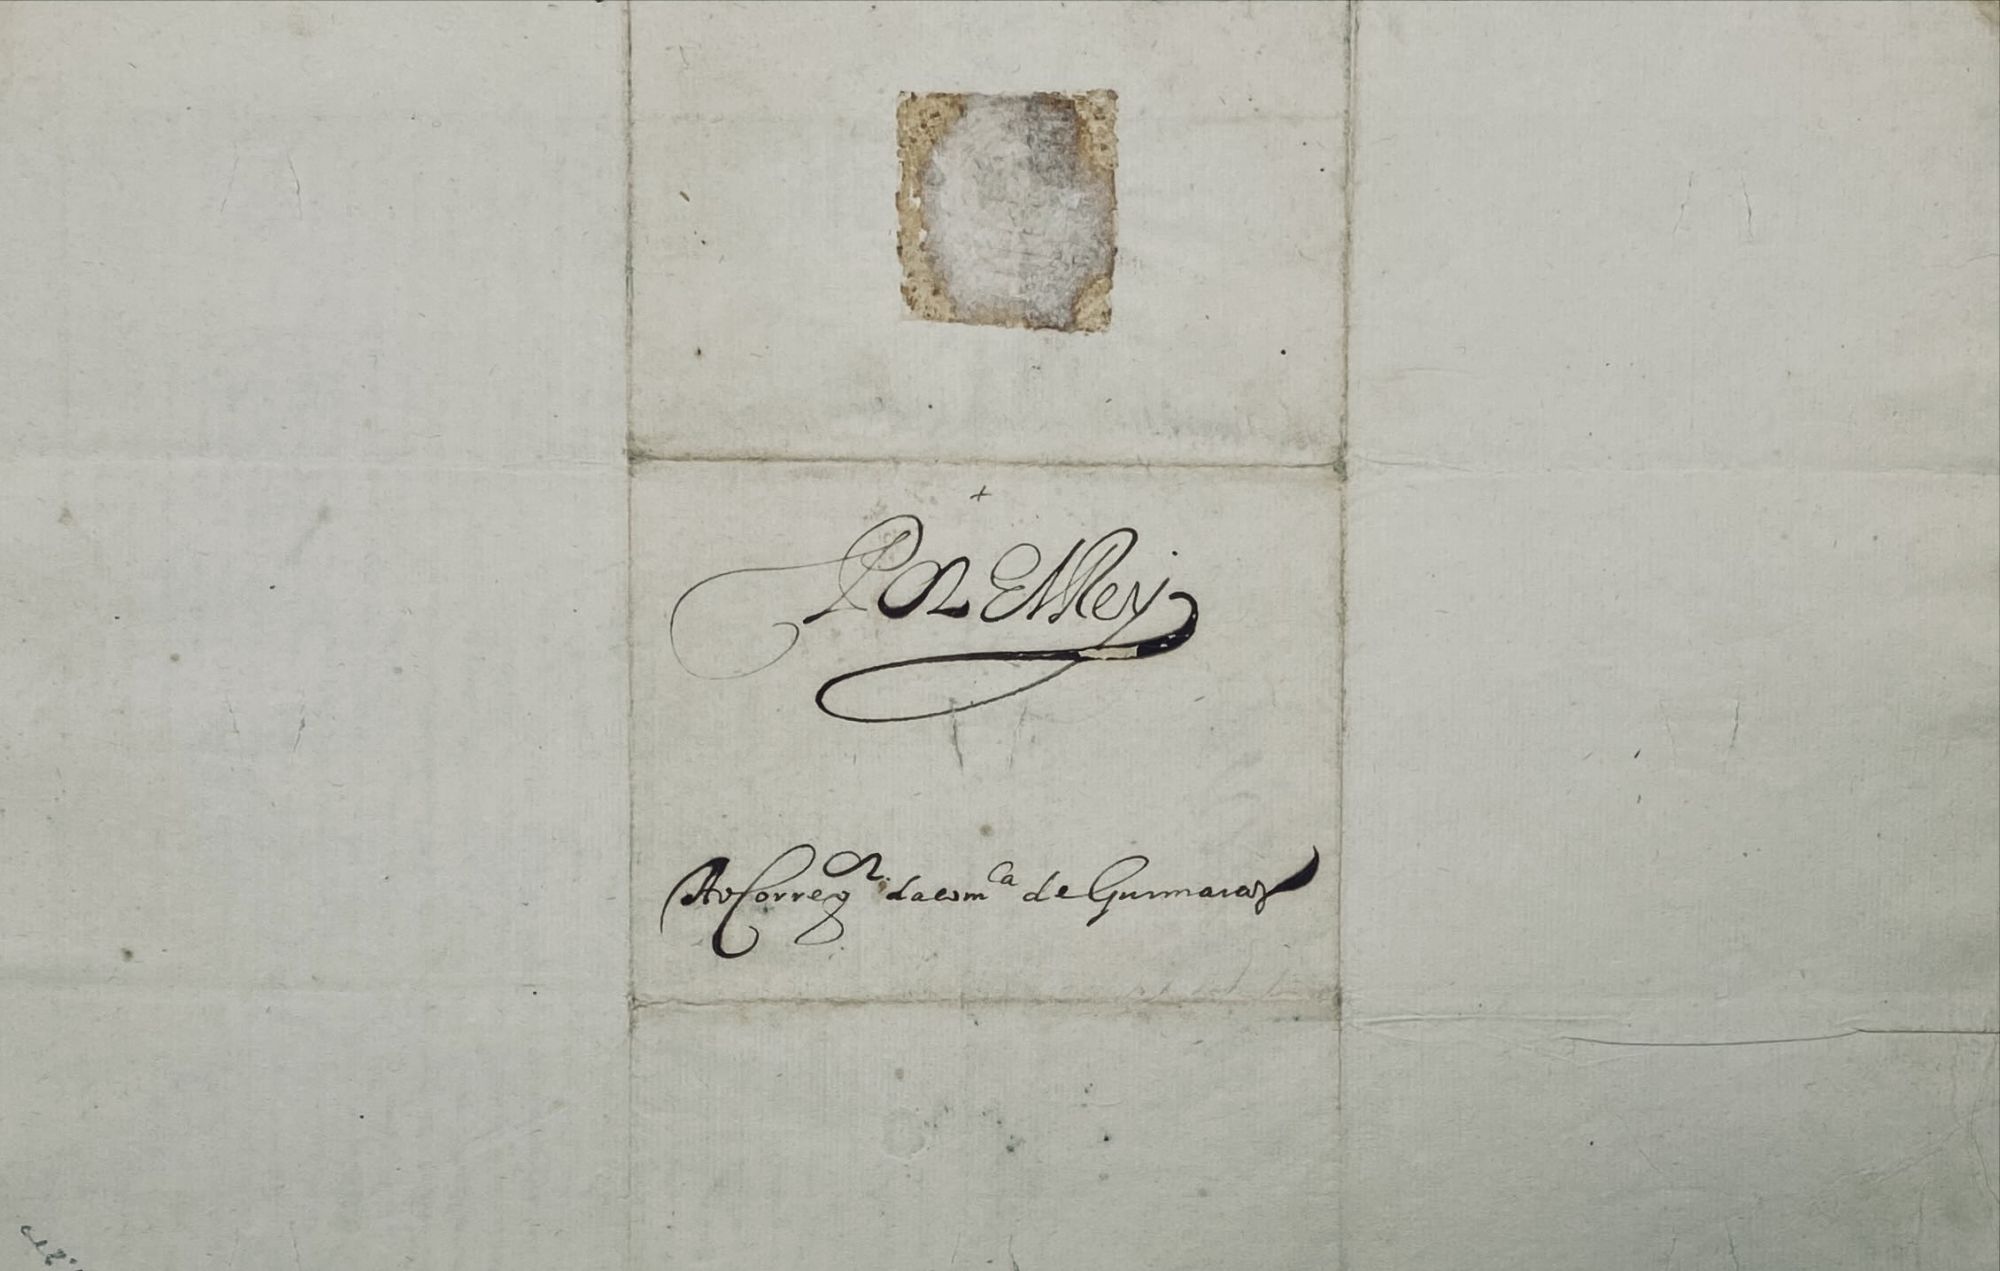 +
Por ElRey
Ao Correg.or da com.ca de Guimaraes